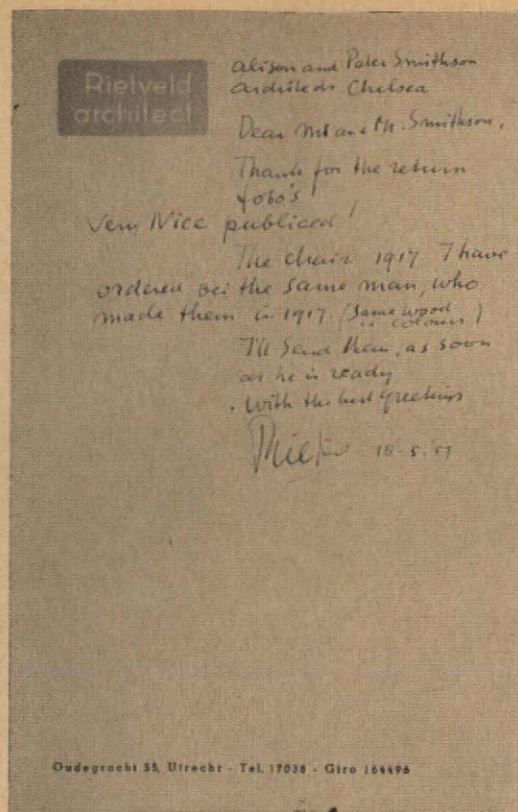 Rietveld
architect
Alison and Peter Smithson
architects Chelsea
Dear Ms and Mr. Smithson,
Thank for the return
foto's!
Very Nice publiced!
The chair 1917 I have
ordered bei the same man, who
made them in 1917. (Same wood
" colours)
I'll send them, as soon
as he is ready
. with the best greetings
18-5-'59
Oudegracht 55, Utrecht - Tel. 17038 - Giro 164496